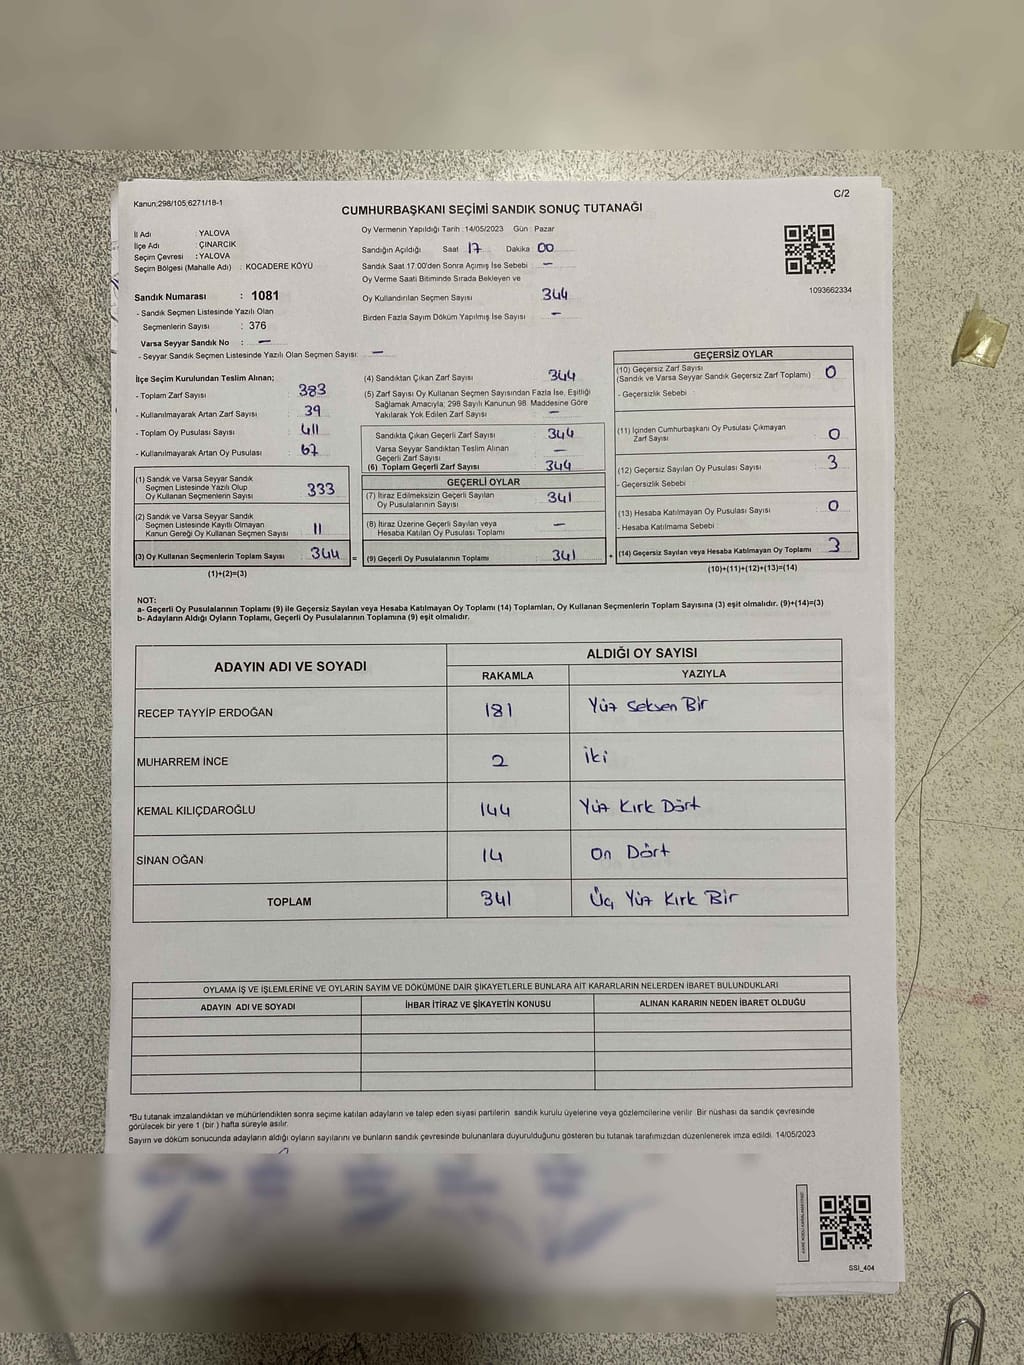 Kanun;298/105,6271/18-1
C/2
CUMHURBAŞKANI SEÇİMİ SANDIK SONUÇ TUTANAĞI
İl Adı : YALOVA
İlçe Adı : ÇINARCIK
Seçim Çevresi : YALOVA
Seçim Bölgesi (Mahalle Adı) : KOCADERE KÖYÜ
Sandık Numarası : 1081
- Sandık Seçmen Listesinde Yazılı Olan
Seçmenlerin Sayısı : 376
Varsa Seyyar Sandık No : —
- Seyyar Sandık Seçmen Listesinde Yazılı Olan Seçmen Sayısı: —
Oy Vermenin Yapıldığı Tarih :14/05/2023 Gün : Pazar
Sandığın Açıldığı Saat 17 Dakika 00
Sandık Saat 17:00'den Sonra Açımış İse Sebebi —
Oy Verme Saati Bitiminde Sırada Bekleyen ve
Oy Kullandırılan Seçmen Sayısı 344
Birden Fazla Sayım Döküm Yapılmış İse Sayısı —
1093662334
İlçe Seçim Kurulundan Teslim Alınan;
- Toplam Zarf Sayısı : 383
- Kullanılmayarak Artan Zarf Sayısı : 39
- Toplam Oy Pusulası Sayısı : 411
- Kullanılmayarak Artan Oy Pusulası : 67
(1) Sandık ve Varsa Seyyar Sandık
Seçmen Listesinde Yazılı Olup
Oy Kullanan Seçmenlerin Sayısı 333
(2) Sandık ve Varsa Seyyar Sandık
Seçmen Listesinde Kayıtlı Olmayan
Kanun Gereği Oy Kullanan Seçmen Sayısı 11
(3) Oy Kullanan Seçmenlerin Toplam Sayısı 344 =
(1)+(2)=(3)
(4) Sandıktan Çıkan Zarf Sayısı 344
(5) Zarf Sayısı Oy Kullanan Seçmen Sayısından Fazla İse, Eşitliği
Sağlamak Amacıyla; 298 Sayılı Kanunun 98. Maddesine Göre
Yakılarak Yok Edilen Zarf Sayısı —
Sandıkta Çıkan Geçerli Zarf Sayısı 344
Varsa Seyyar Sandıktan Teslim Alınan
Geçerli Zarf Sayısı —
(6) Toplam Geçerli Zarf Sayısı 344
GEÇERLİ OYLAR
(7) İtiraz Edilmeksizin Geçerli Sayılan
Oy Pusulalarının Sayısı 341
(8) İtiraz Üzerine Geçerli Sayılan veya
Hesaba Katılan Oy Pusulası Toplamı —
(9) Geçerli Oy Pusulalarının Toplamı 341 +
GEÇERSİZ OYLAR
(10) Geçersiz Zarf Sayısı
(Sandık ve Varsa Seyyar Sandık Geçersiz Zarf Toplamı) 0
- Geçersizlik Sebebi
(11) İçinden Cumhurbaşkanı Oy Pusulası Çıkmayan
Zarf Sayısı 0
(12) Geçersiz Sayılan Oy Pusulası Sayısı 3
- Geçersizlik Sebebi
(13) Hesaba Katılmayan Oy Pusulası Sayısı 0
- Hesaba Katılmama Sebebi
(14) Geçersiz Sayılan veya Hesaba Katılmayan Oy Toplamı 3
(10)+(11)+(12)+(13)=(14)
NOT:
a- Geçerli Oy Pusulalarının Toplamı (9) ile Geçersiz Sayılan veya Hesaba Katılmayan Oy Toplamı (14) Toplamları, Oy Kullanan Seçmenlerin Toplam Sayısına (3) eşit olmalıdır. (9)+(14)=(3)
b- Adayların Aldığı Oyların Toplamı, Geçerli Oy Pusulalarının Toplamına (9) eşit olmalıdır.
ADAYIN ADI VE SOYADI
ALDIĞI OY SAYISI
RAKAMLA YAZIYLA
RECEP TAYYİP ERDOĞAN 181 Yüz Seksen Bir
MUHARREM İNCE 2 İki
KEMAL KILIÇDAROĞLU 144 Yüz Kırk Dört
SİNAN OĞAN 14 On Dört
TOPLAM 341 Üç Yüz Kırk Bir
OYLAMA İŞ VE İŞLEMLERİNE VE OYLARIN SAYIM VE DÖKÜMÜNE DAİR ŞİKAYETLERLE BUNLARA AİT KARARLARIN NELERDEN İBARET BULUNDUKLARI
ADAYIN ADI VE SOYADI İHBAR İTİRAZ VE ŞİKAYETİN KONUSU ALINAN KARARIN NEDEN İBARET OLDUĞU
*Bu tutanak imzalandıktan ve mühürlendikten sonra seçime katılan adayların ve talep eden siyasi partilerin sandık kurulu üyelerine veya gözlemcilerine verilir. Bir nüshası da sandık çevresinde
görülecek bir yere 1 (bir ) hafta süreyle asılır.
Sayım ve döküm sonucunda adayların aldığı oyların sayılarını ve bunların sandık çevresinde bulunanlara duyurulduğunu gösteren bu tutanak tarafımızdan düzenlenerek imza edildi. 14/05/2023
SSI_404